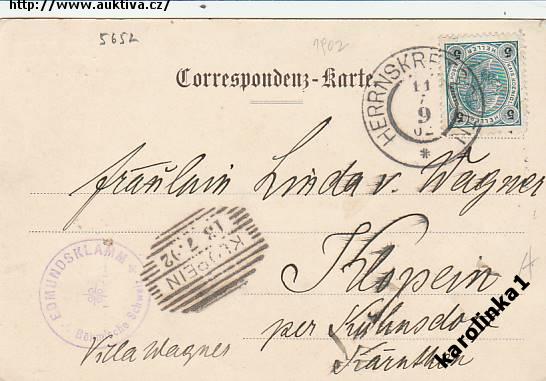 http://www.auktiva.cz/
5652
1902
Correspondenz-Karte.
HERRNSKRETSCHEN
11
7
9
02
5 HELLER 5
Fräulein Linda v. Wagner
Klopein
per Kühnsdorf
Kärnthen
Villa Wagner
KLOPEIN
13.7.02
EDMUNDSKLAMM
Böhmische Schweiz
karolinka1